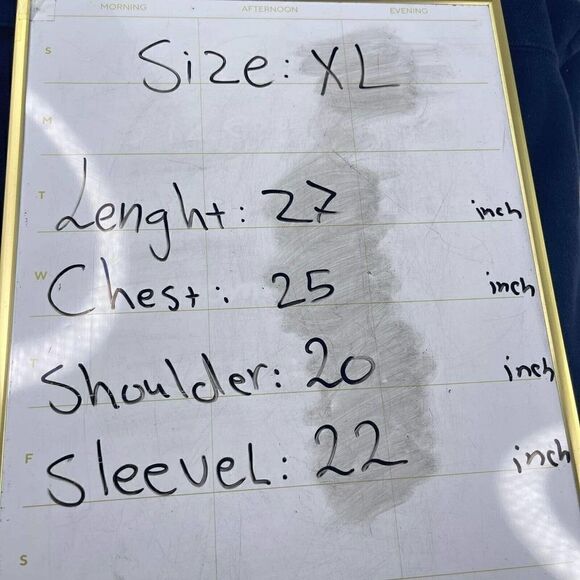 MORNING AFTERNOON EVENING
S Size: XL
M
T Lenght: 27 inch
W Chest: 25 inch
T Shoulder: 20 inch
F SleeveL: 22 inch
S